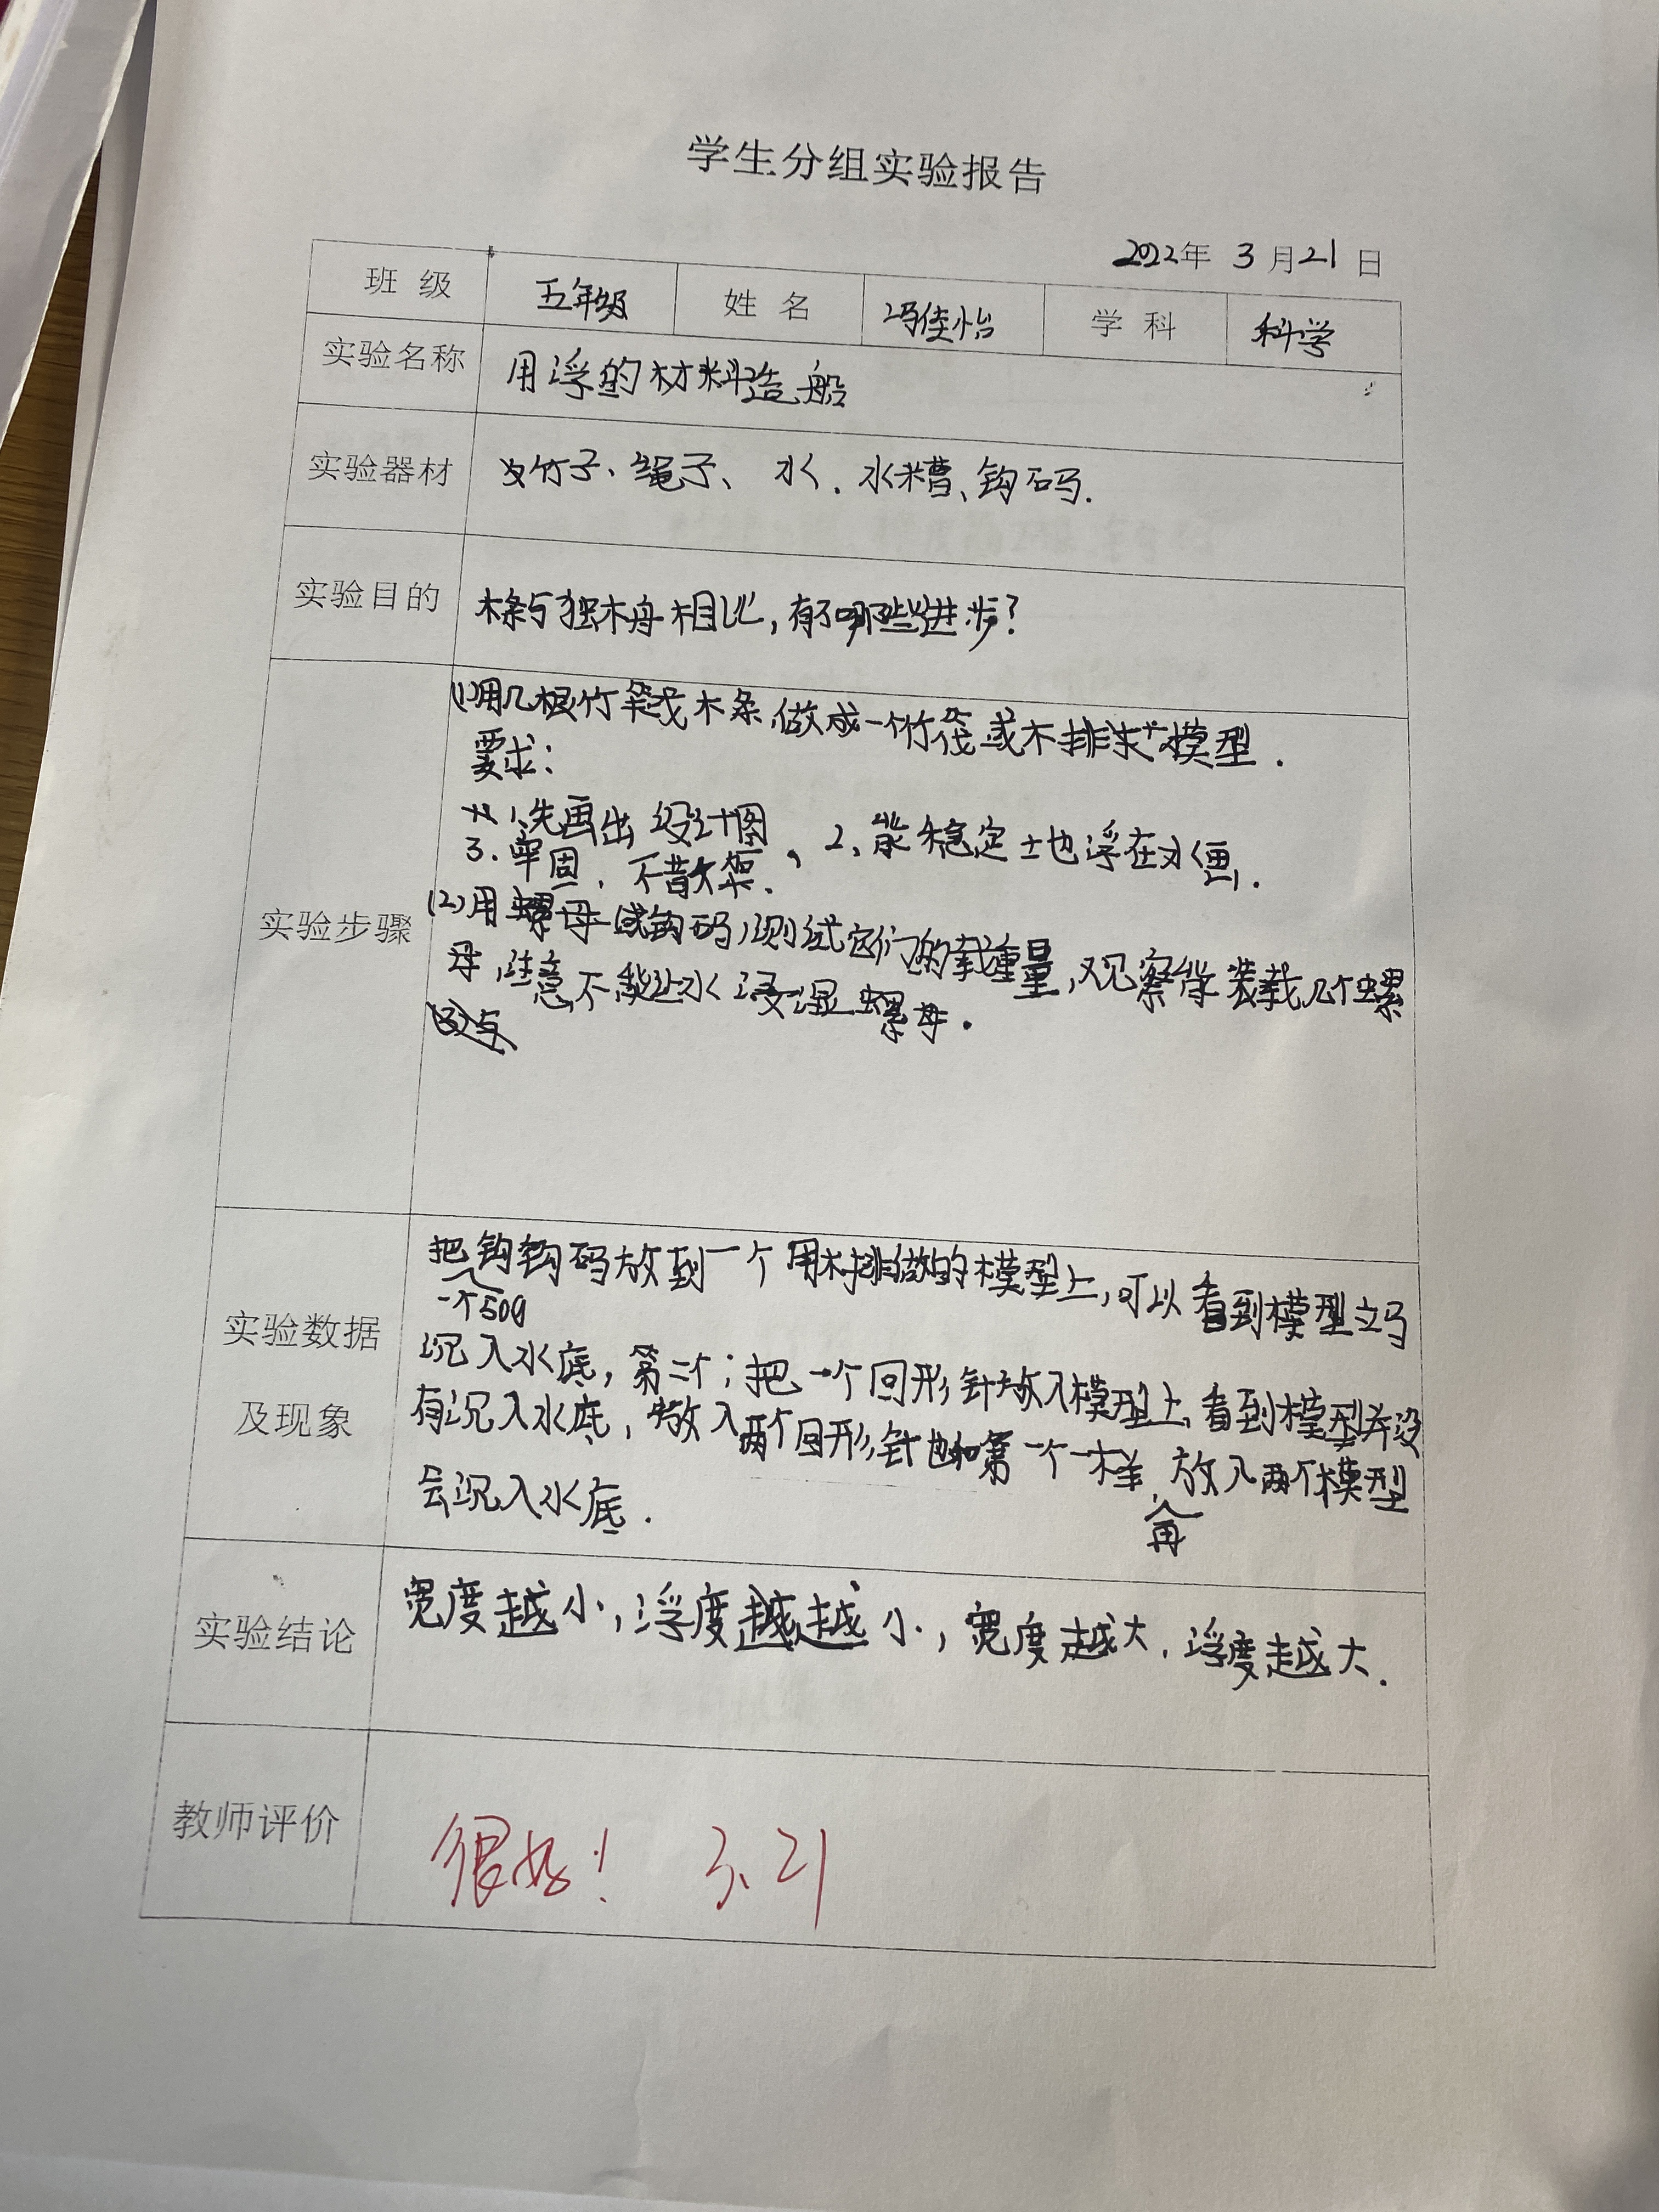 学生分组实验报告
2022年 3月21日
班级 五年级 姓名 冯佳怡 学科 科学
实验名称 用浮的材料造船
实验器材 竹子、绳子、水、水槽、钩码.
实验目的 木条与独木舟相比,有了哪些进步?
(1)用几根竹筷或木条,做成一个竹筏或木排模型.
要求:
1、先画出设计图、2、能稳定地浮在水面.
3.牢固,不散架.
实验步骤
(2)用螺母或钩码,测试它们的载重量,观察能装载几个螺
母,注意不能让水浸湿螺母.
把一个50g钩码放到一个用木排做的模型上,可以看到模型立马
实验数据
沉入水底,第二个;把一个回形针放入模型上,看到模型并没
及现象
有沉入水底,放入两个回形针也和第一个一样,再放入两个模型
会沉入水底.
实验结论 宽度越小,浮度越越小,宽度越大,浮度越大.
教师评价 很好! 3.21